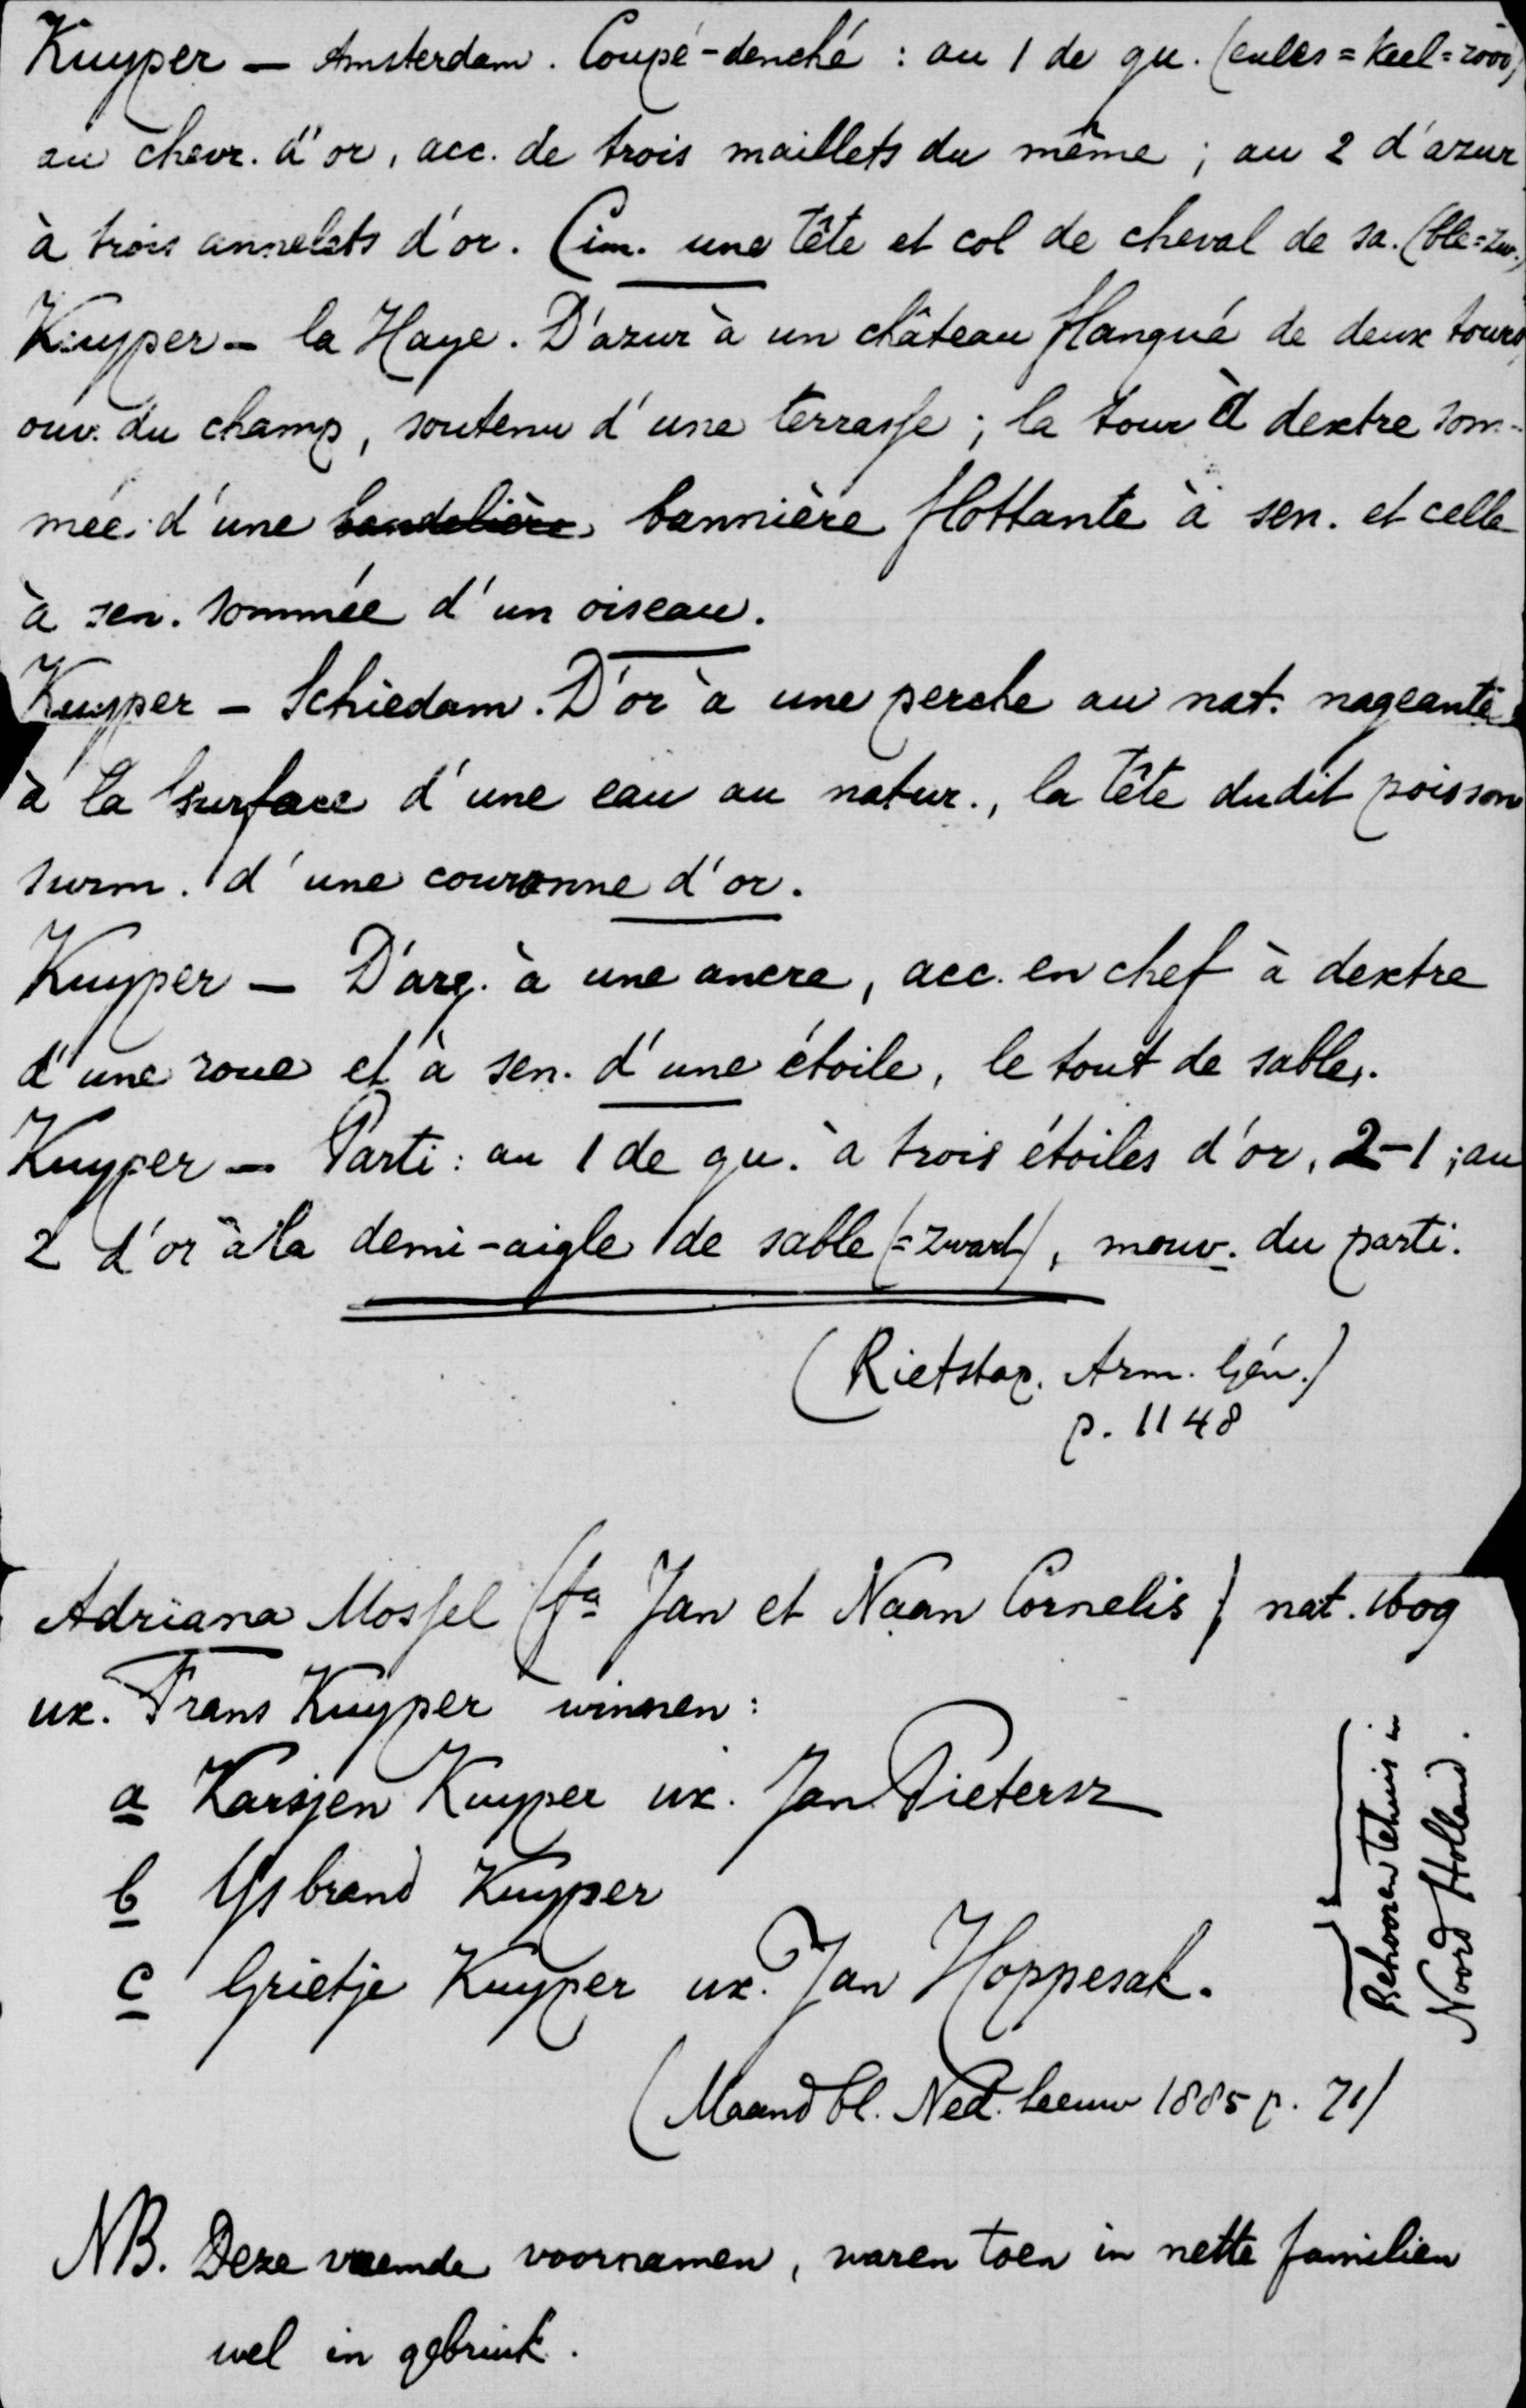 Kuyper — Amsterdam. Coupé-denché : au 1 de gu. (eules = keel = rood)
au chevr. d'or, acc. de trois maillets du même ; au 2 d'azur
à trois annelets d'or. Cim. une tête et col de cheval de sa. (ble = zw.)
Kuyper — la Haye. D'azur à un château flanqué de deux tours
ouv. du champ, soutenu d'une terrasse ; la tour à dextre som-
mée d'une bandelière bannière flottante à sen. et celle
à sen. sommée d'un oiseau.
Kuyper — Schiedam. D'or à une perche au nat. nageante
à la surface d'une eau au natur., la tête dudit poisson
surm. d'une couronne d'or.
Kuyper — D'arg. à une ancre, acc. en chef à dextre
d'une roue et à sen. d'une étoile, le tout de sable.
Kuyper — Parti : au 1 de gu. à trois étoiles d'or, 2-1 ; au
2 d'or à la demi-aigle de sable (= zwart), mouv. du parti.
(Rietstap. Arm. Gén.)
p. 1148
Adriana Mossel (fa Jan et Naan Cornelis) nat. 1609
ux. Frans Kuyper winnen :
a Karsjen Kuyper ux. Jan Pietersz
b IJsbrand Kuyper
c Grietje Kuyper ux. Jan Hoppesak.
Behooren tehuis in
Noord Holland.
(Maandbl. Ned. Leeuw 1885 p. 71)
NB. Deze vreemde voornamen, waren toen in nette familien
wel in gebruik.